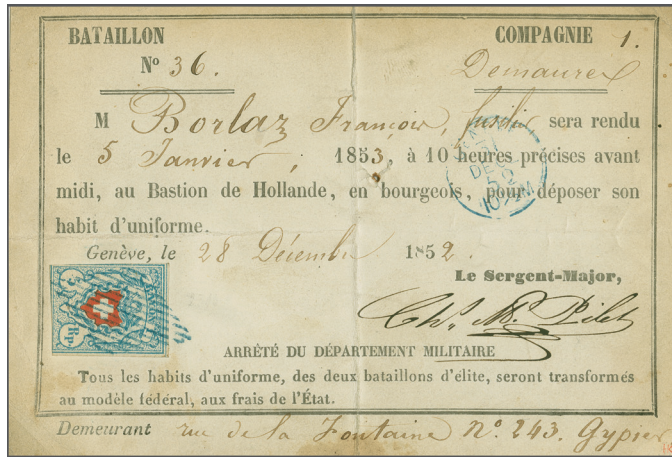 BATAILLON COMPAGNIE 1.
Nº 36. Demaurex
M Borlaz François, fusilier sera rendu
le 5 Janvier, 1853, à 10 heures précises avant
midi, au Bastion de Hollande, en bourgeois, pour déposer son
habit d'uniforme.
Genève, le 28 Décembre 1852.
Le Sergent-Major,
Chs. M. Pilet
5 Rp
ARRÊTÉ DU DÉPARTEMENT MILITAIRE
Tous les habits d'uniforme, des deux bataillons d'élite, seront transformés
au modèle fédéral, aux frais de l'État.
Demeurant rue de la Fontaine Nº. 243. Gypier